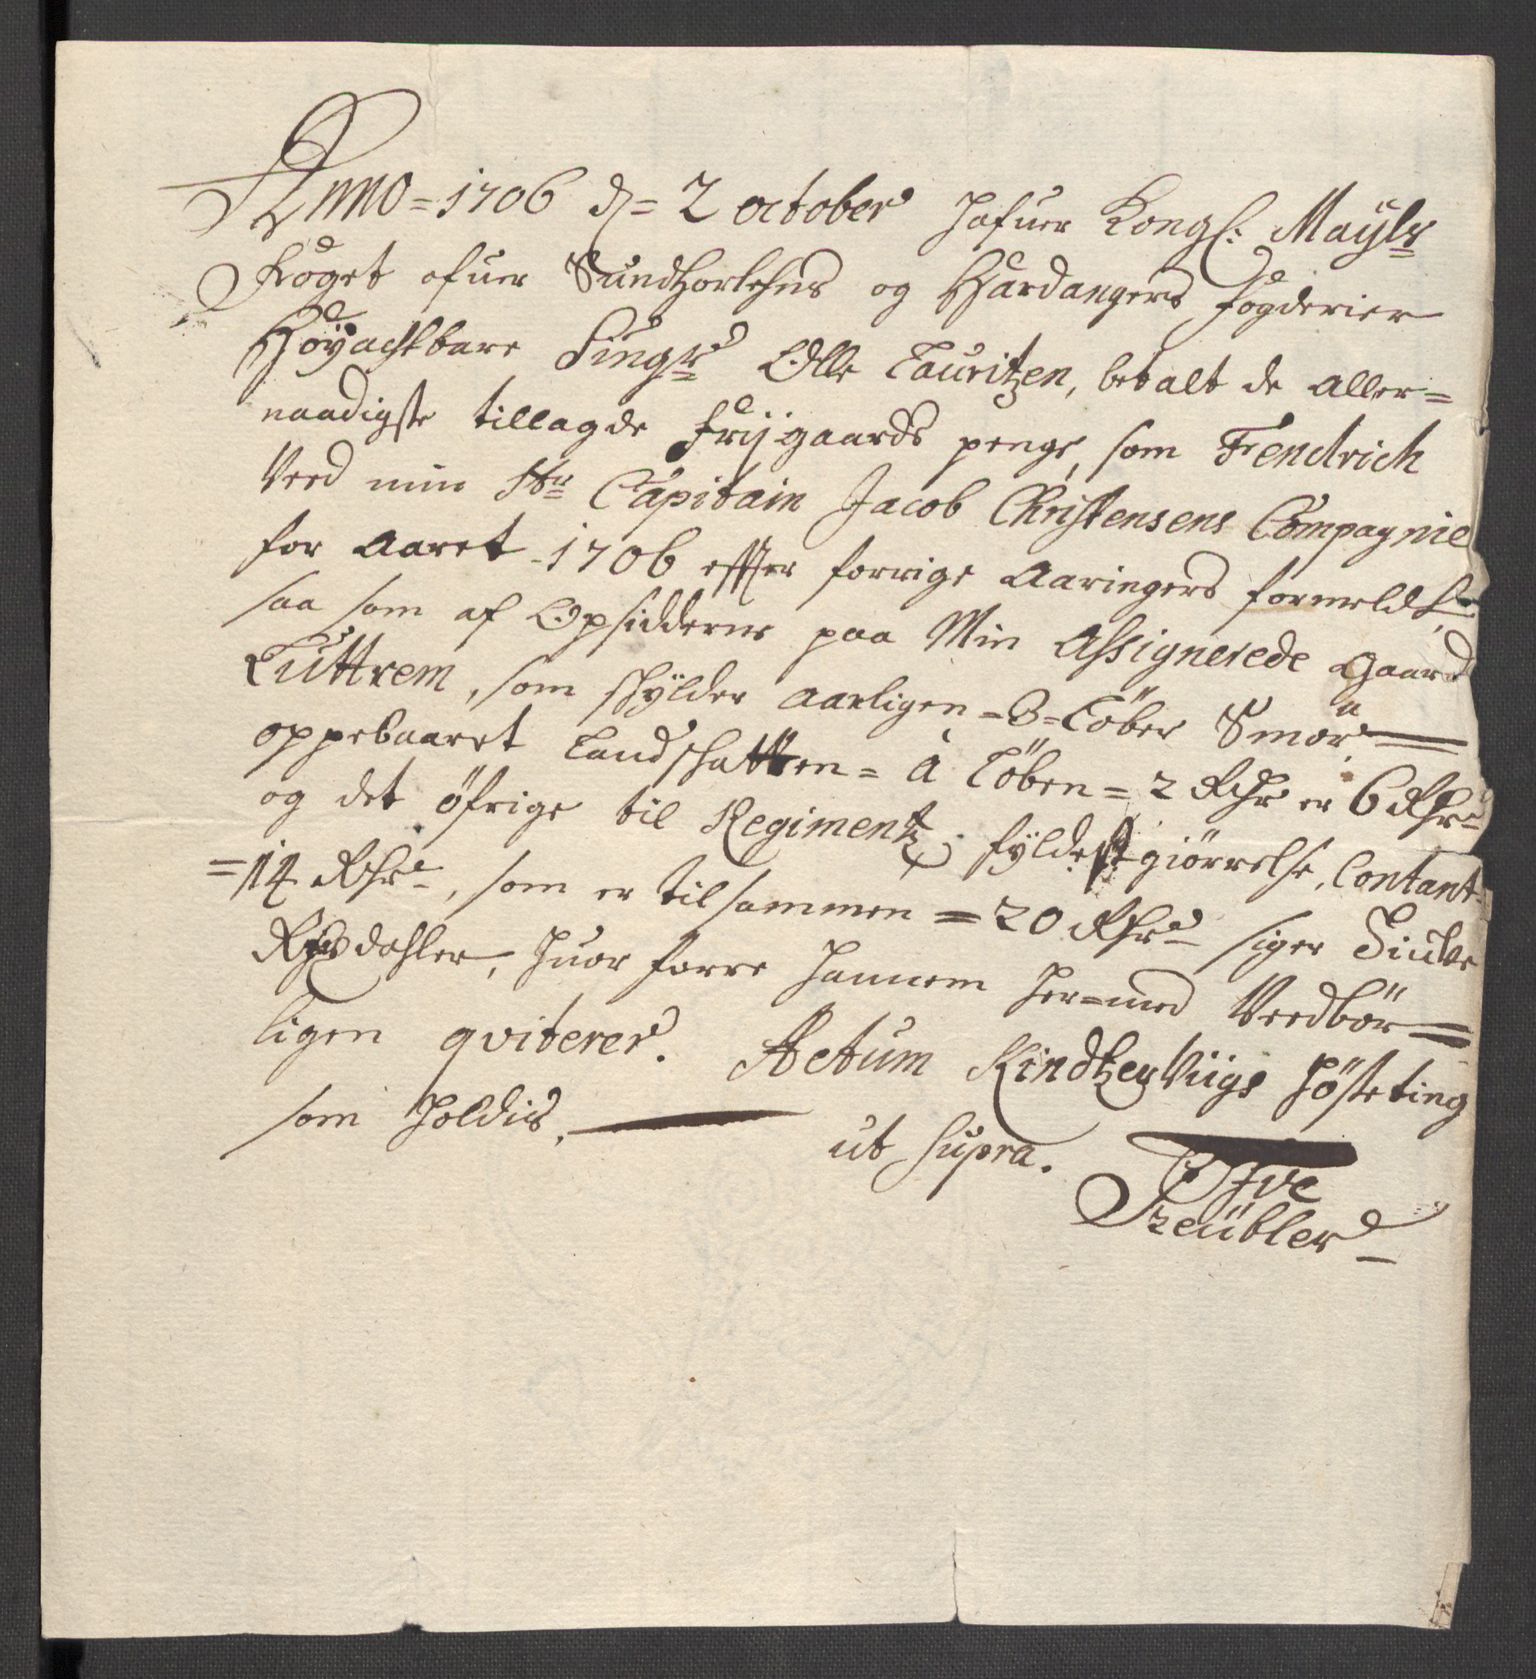 Anno = 1706 d = 2 october hafuer Kongl: Maÿts
Foget ofuer Sundhorlehns og Hardangers fogderier
Höÿachtbare Singr Olle Lauritzen, betalt de aller=
naadigste tillagde frijgaards penge, som Fendrich
Veed min Hr Capitain Jacob Christensens Compagnie
for Aaret 1706 effter forrige Aaringers formeld
saa som af Opsidderne paa Min Assignerede gaard
Luttrem, som skÿlder aarligen = 3 = Löber Smör
oppebaaret Landskatten = â Löben = 2 Rdr er 6 Rdr
og det öfrige til Regimentz fÿldestgiörrelse, Contant
= 14 Rdr, som er tilsammen = 20 Rdr siger Tiufve
Rixdahler, huor forre hannem her=med Veedbör=
ligen qviterer. Actum KindtzerViigs höste ting
som holdis,
ut supra.
Treübler